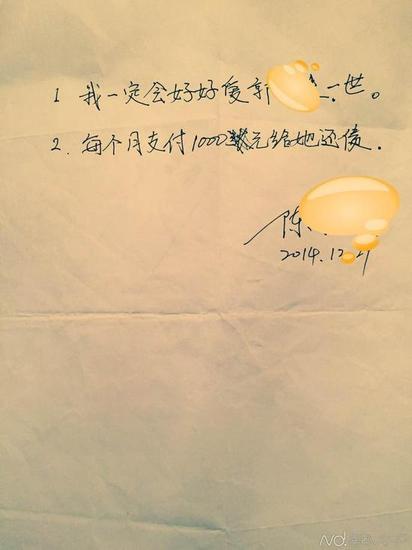 1 我一定会好好爱郭 一世。
2. 每个月支付1000元给她还债.
陈
2014.12.